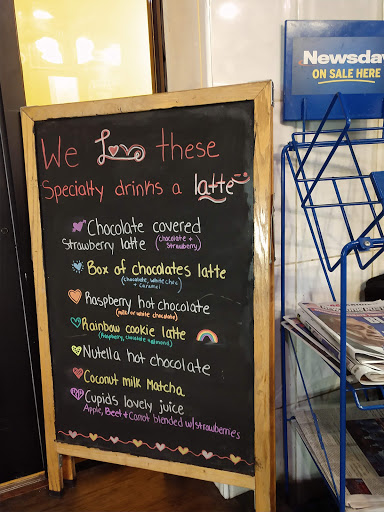 We Love these
Specialty drinks a latte
Chocolate covered
Strawberry latte (chocolate + strawberry)
Box of chocolates latte
(chocolate, white choc + caramel)
Raspberry hot chocolate
(milk or white chocolate)
Rainbow cookie latte
(Raspberry, chocolate + almond)
Nutella hot chocolate
Coconut milk Matcha
Cupids lovely juice
Apple, Beet + Carrot blended w/ strawberries
Newsday
ON SALE HERE